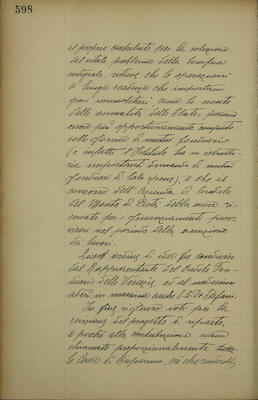 598
il proprio contributo per la soluzione
del vitale problema della bonifica
integrale, ritiene che le operazioni
di lunga scadenza che importano
gravi immobilizzi come lo sconto
delle annualità dello Stato, possano
essere più opportunamente compiute
sotto forma di mutui fondiari
(e infatti l'Istituto ha in istruttoria
importanti domande di mutui
fondiari di tale specie), e che il
concorso dell'Azienda di Credito
del Monte di Pietà debba essere
per i finanziamenti
nel periodo della esecuzione
dei lavori.
Quest'ordine di idee fu condiviso
dal Rappresentante del Credito Fon
diario delle Venezie, ed al medesimo
aderì in massima anche
In fine vigilerà
revisione del progetto di riparto,
e perché alla contribuzione siano
chiamate proporzionalmente tutte
le Casse di Risparmio,